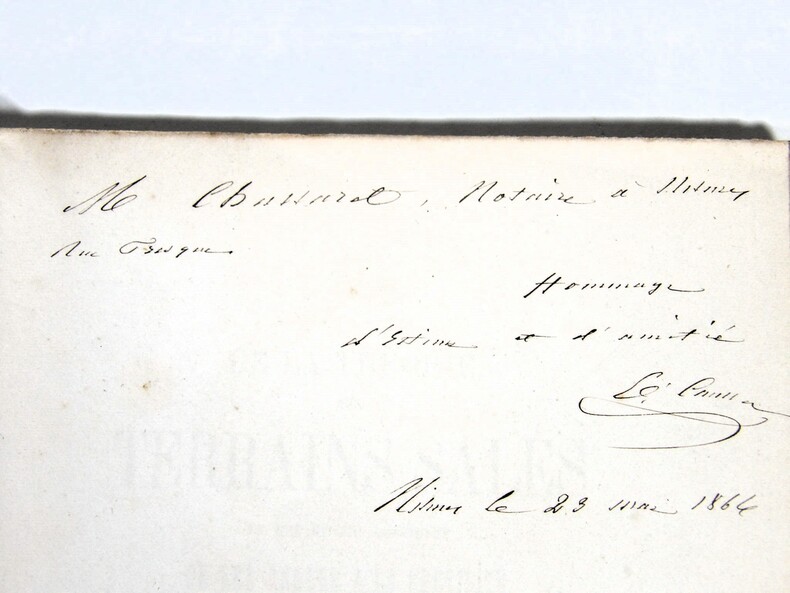 M Chassaret, Notaire à Nismes
Rue Fresque
Hommage
d'Estime et d'amitié
Nismes le 23 mai 1864
TERRAINS SALÉS